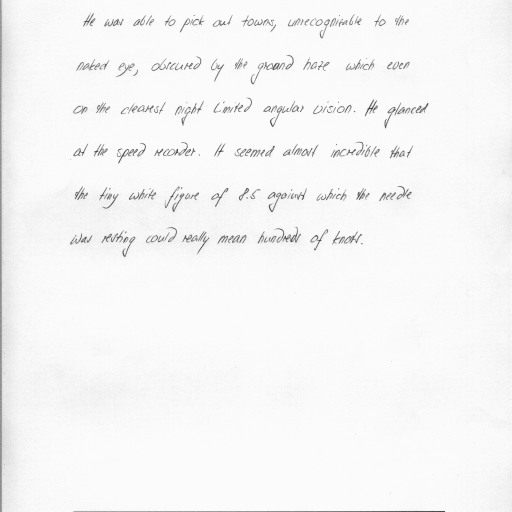 He was able to pick out towns, unrecognizable to the
naked eye, obscured by the ground haze which even
on the clearest night limited angular vision. He glanced
at the speed recorder. It seemed almost incredible that
the tiny white figure of 8.5 against which the needle
was resting could really mean hundreds of knots.